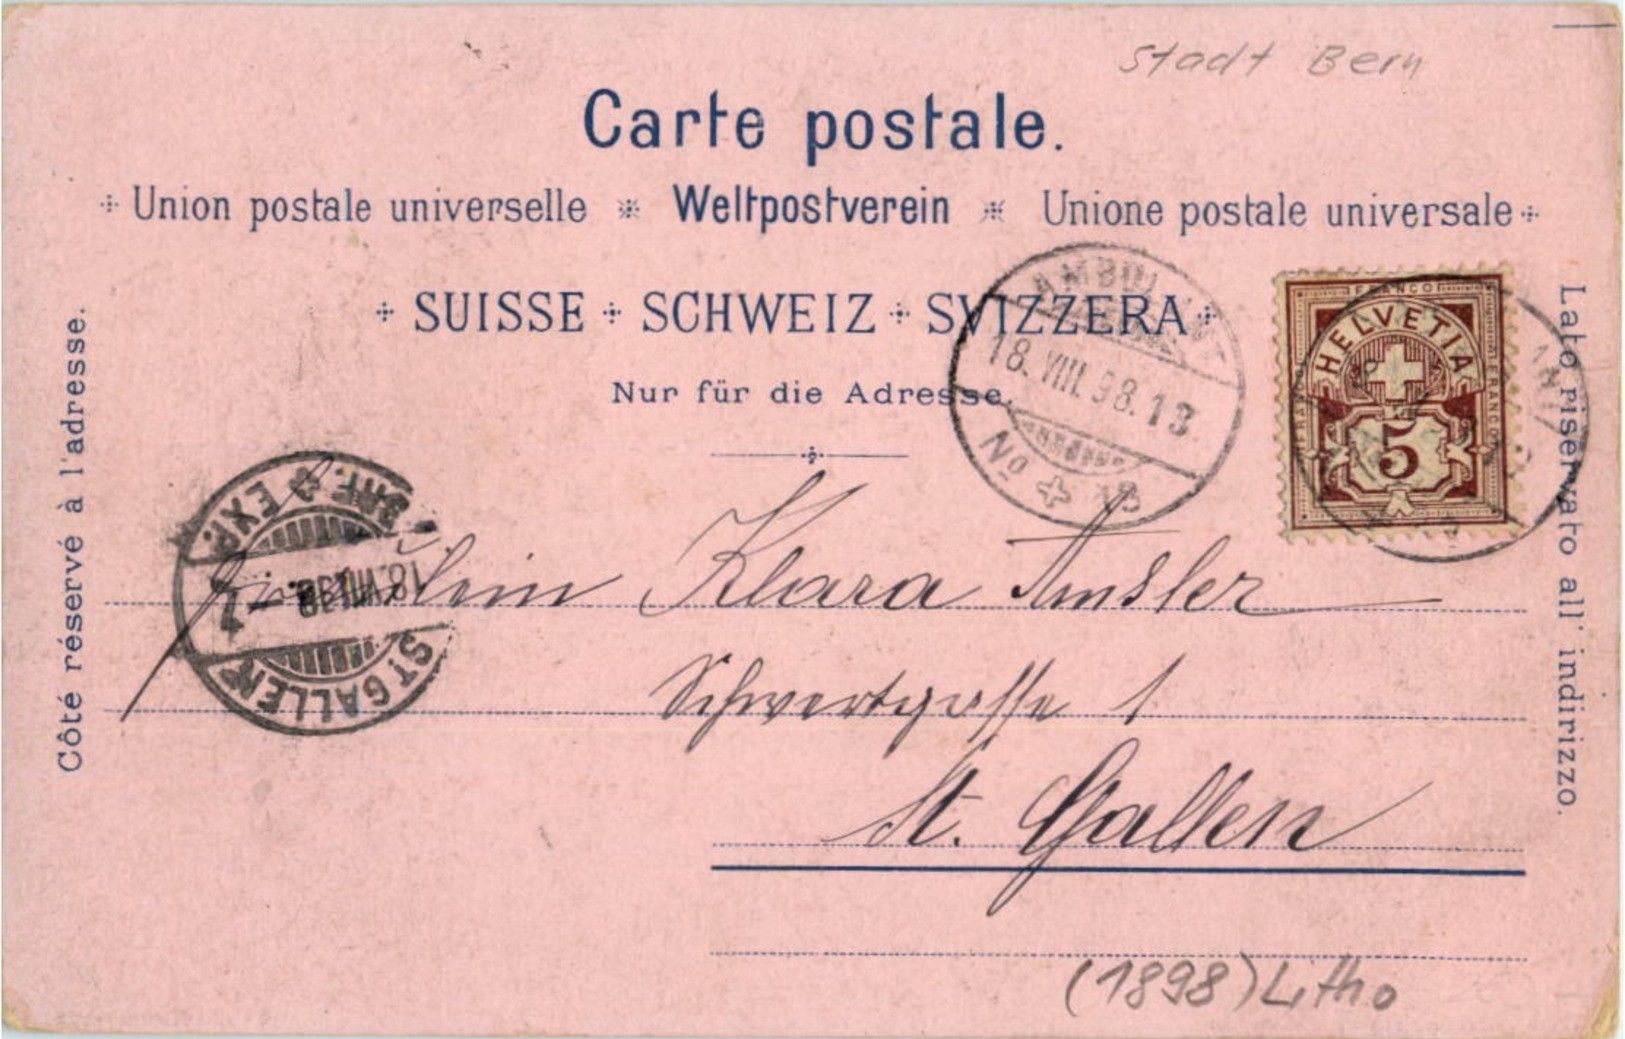 Stadt Bern
Carte postale.
Union postale universelle Weltpostverein Unione postale universale
SUISSE SCHWEIZ SVIZZERA
Nur für die Adresse.
Côté réservé à l'adresse.
Lato riservato all' indirizzo.
AMBULANT
18.VIII.98.13
No 13
FRANCO
HELVETIA
5
BRF. EXP.
18.VIII.98
ST GALLEN
Fräulein Klara Amsler
Schwertgasse 1
St. Gallen
(1898) Litho